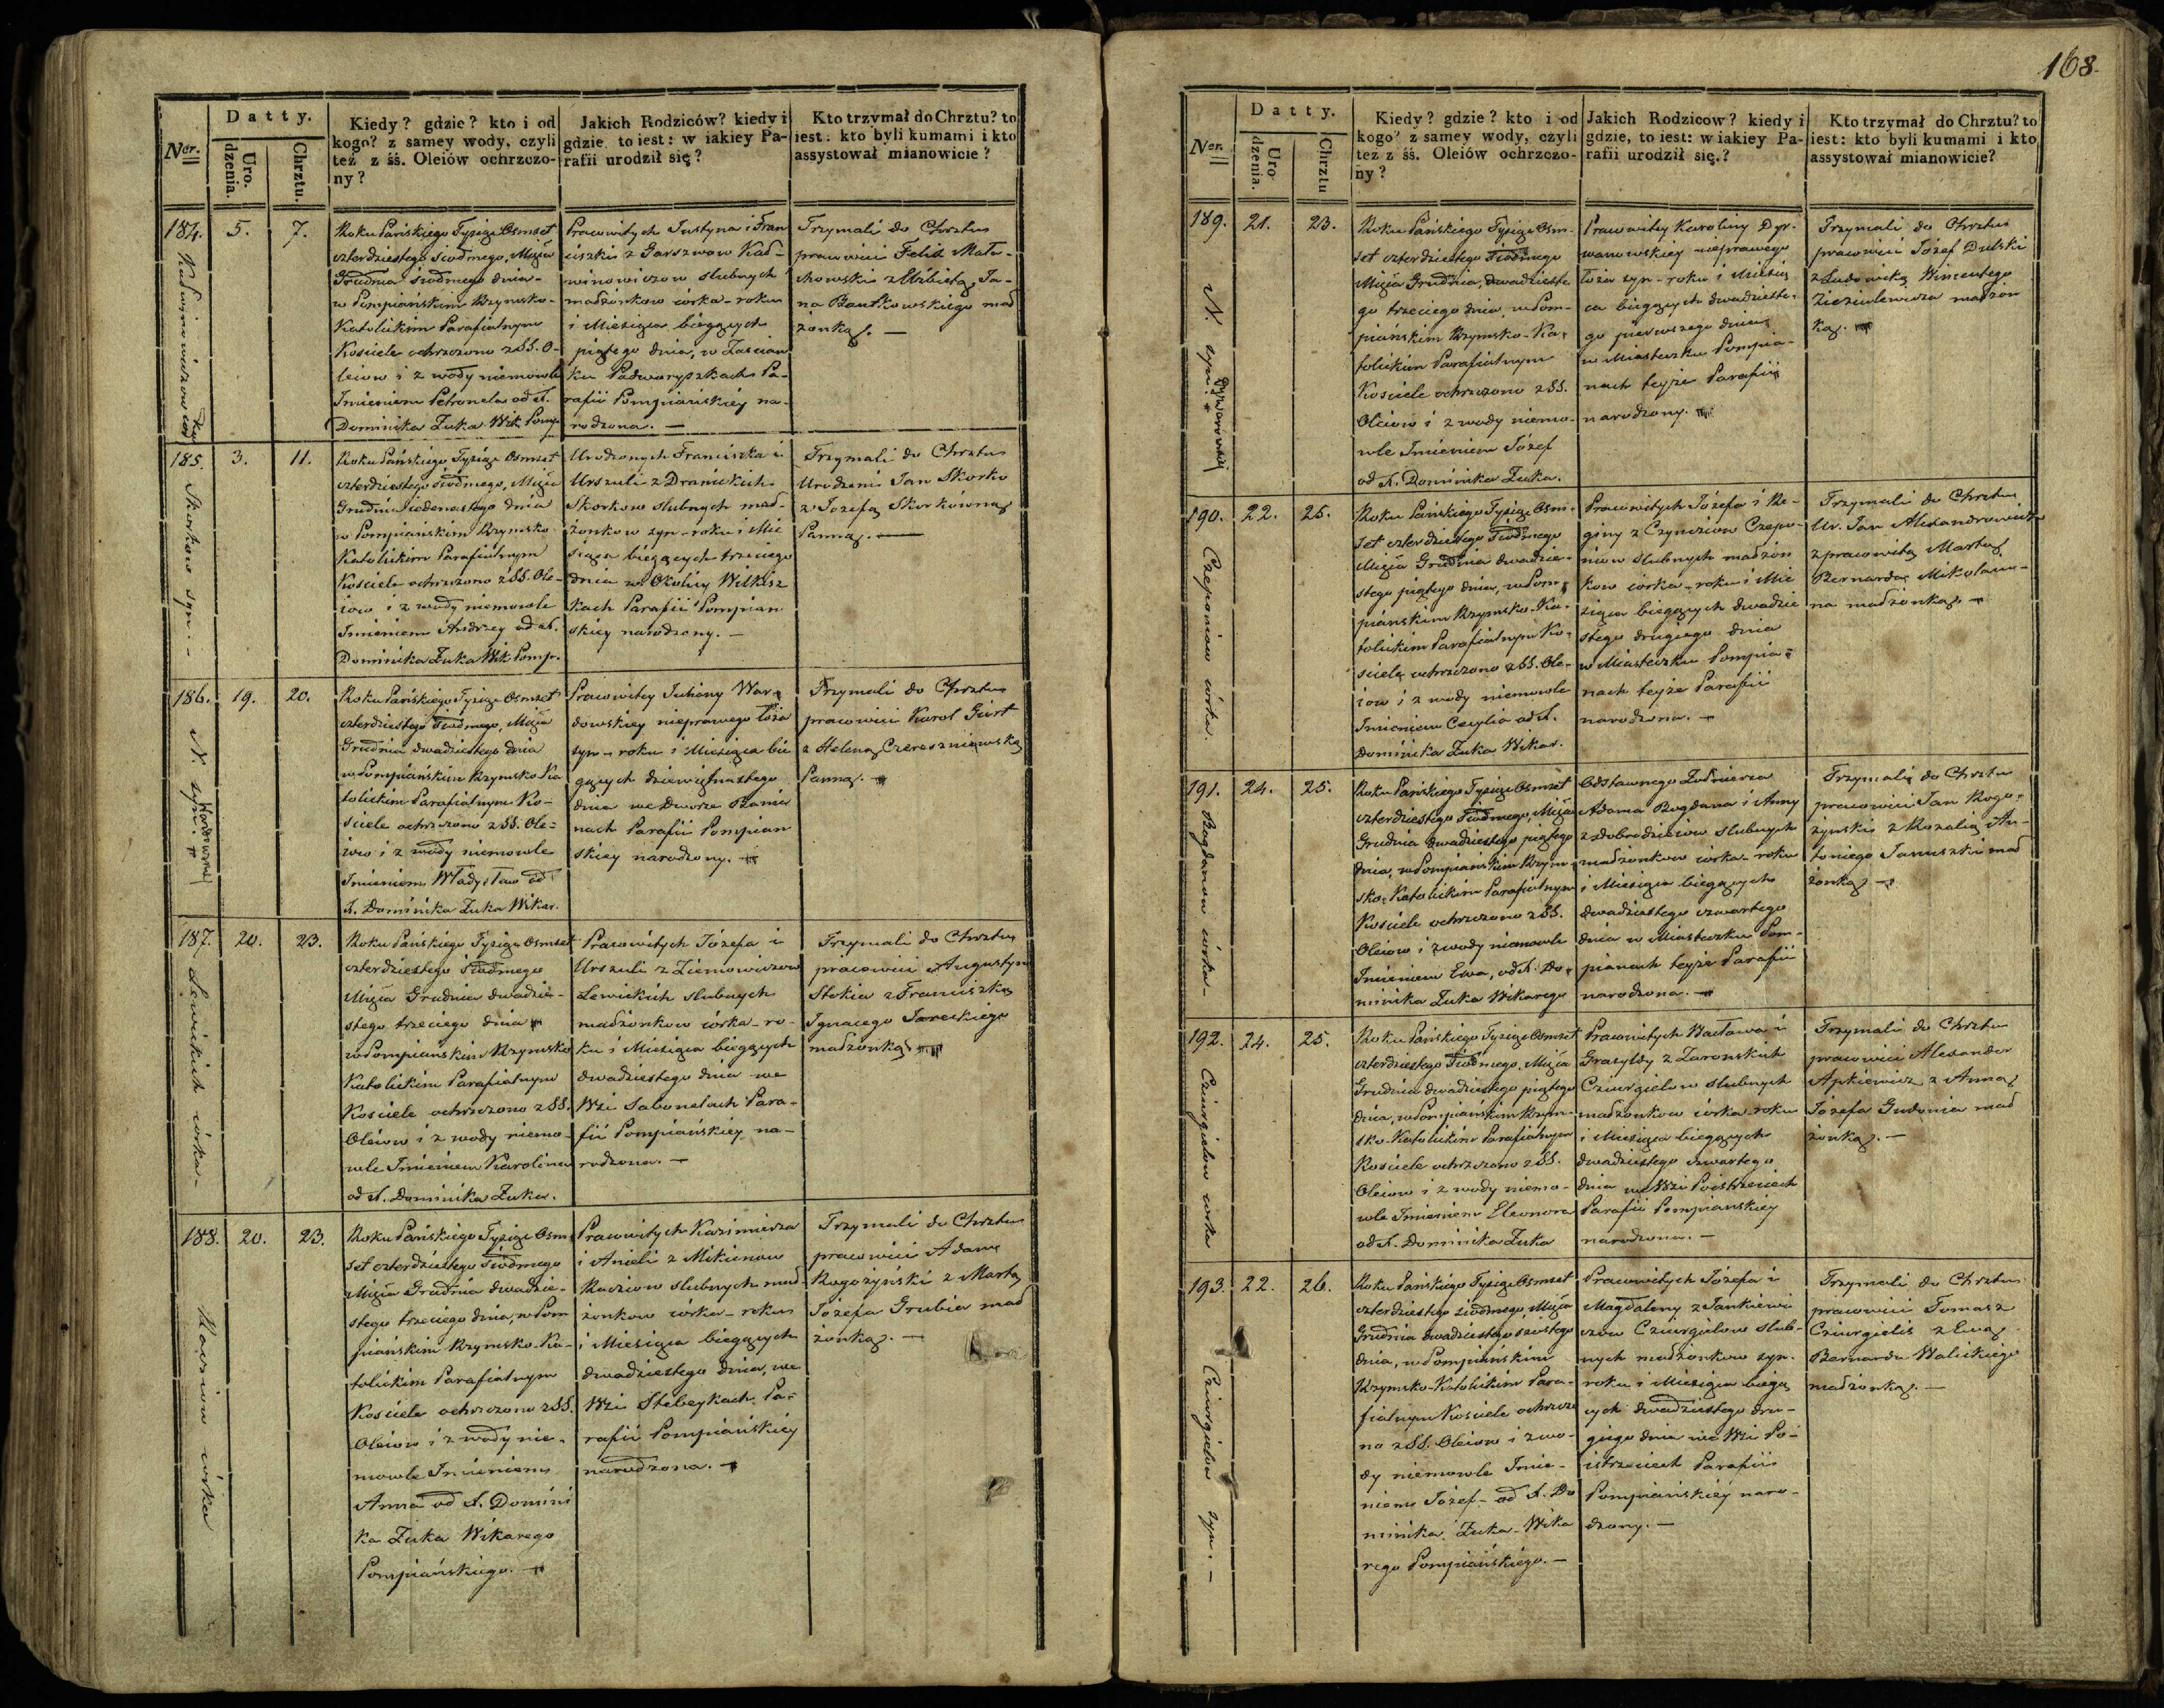 Ner.
Datty.
Uro.
dzenia.
Chrztu.
Kiedy? gdzie? kto i od
kogo? z samey wody, czyli
też z śś. Oleiów ochrzczo-
ny?
Jakich Rodziców? kiedy i
gdzie to iest: w iakiey Pa-
rafii urodził się?
Kto trzymał do Chrztu? to
iest: kto byli kumami i kto
assystował mianowicie?
184.
5.
7.
Roku Pańskiego Tysiąc Osmset
czterdziestego siodmego, Miesiąca
Grudnia siodmego dnia
w Pompiańskim Rzymsko-
Katolickim Parafialnym
Kosciele ochrzczono z SS. O-
leiow i z wody niemowle
Imieniem Petronela od X.
Dominika Żuka Wik. Pomp.
Pracowitych Justyna i Fran
ciszki z Garszwow Kud-
winowiczow slubnych
małżonkow córka - roku
i Miesiąca bieżących
piątego dnia, w Zascian
ku Padwaryszkach Pa-
rafii Pompiańskiey na-
rodzona. —
Trzymali do Chrztu
pracowici Felix Mali-
chowski z Elżbietą Ja-
na Bautkowskiego mał
żonką. —
185.
3.
11.
Skorkow syn. -
Roku Pańskiego Tysiąc Osmset
czterdziestego siodmego, Miesiąca
Grudnia iedenastego dnia
w Pompiańskim Rzymsko
Katolickim Parafialnym
Kosciele ochrzczono z SS. Ole-
iow i z wody niemowle
Imieniem Andrzey od X.
Dominika Żuka Wik. Pomp.
Urodzonych Franciszka i
Urszuli z Dranickich
Skorkow slubnych mał-
żonkow syn - roku i Mie
siąca bieżących trzeciego
dnia w Okolicy Wilkisz
kach Parafii Pompian
skiey narodzony. —
Trzymali do Chrztu
Urodzeni Jan Skorko
z Jozefą Skorkówną
Panną. —
186.
19.
20.
N. syn.
Roku Pańskiego Tysiąc Osmset
czterdziestego siodmego, Miesiąca
Grudnia dwadziestego dnia
w Pompiańskim Rzymsko Ka
tolickim Parafialnym Ko-
sciele ochrzczono z SS. Ole-
iow i z wody niemowle
Imieniem Władysław od
X. Dominika Żuka Wikar.
Pracowitey Julianny War-
dowskiey nieprawego łoża
syn - roku i Miesiąca bie
żących dziewiętnastego
dnia we Dworze Rania
nach Parafii Pompian
skiey narodzony. —
Trzymali do Chrztu
pracowici Karol Girt
z Heleną Czereszniewską
Panną. —
187.
20.
23.
Lewickich córka -
Roku Pańskiego Tysiąc Osmset
czterdziestego siodmego
Miesiąca Grudnia dwadzie-
stego trzeciego dnia
w Pompiańskim Rzymsko
Katolickim Parafialnym
Kosciele ochrzczono z SS.
Oleiow i z wody niemo-
wle Imieniem Karolina
od X. Dominika Żuka.
Pracowitych Józefa i
Urszuli z Ziemowiczow
Lewickich slubnych
małżonkow córka - ro-
ku i Miesiąca bieżących
dwadziestego dnia we
Wsi Sabonelach Para-
fii Pompiańskiey na-
rodzona. —
Trzymali do Chrztu
pracowici Augustyn
Stokia z Franciszką
Ignacego Jareckiego
małżonką
188.
20.
23.
Kaziow córka
Roku Pańskiego Tysiąc Osm
set czterdziestego siodmego
Miesiąca Grudnia dwadzie-
stego trzeciego dnia, w Pom
piańskim Rzymsko-Ka-
tolickim Parafialnym
Kosciele ochrzczono z SS.
Oleiow i z wody nie-
mowle Imieniem
Anna od X. Domini
ka Żuka Wikarego
Pompiańskiego. —
Pracowitych Kazimierza
i Anieli z Mikienow
Kaziow slubnych mał-
żonkow córka - roku
i Miesiąca bieżących
dwadziestego dnia, we
Wsi Stebeykach Pa-
rafii Pompiańskiey
narodzona. —
Trzymali do Chrztu
pracowici Adam
Rogożyński z Martą
Józefa Grubia mał
żonką. —
168.
Ner.
Datty.
Uro
dzenia.
Chrztu
Kiedy? gdzie? kto i od
kogo? z samey wody, czyli
też z śś. Oleiów ochrzczo-
ny?
Jakich Rodziców? kiedy i
gdzie, to iest: w iakiey Pa-
rafii urodził się.?
Kto trzymał do Chrztu? to
iest: kto byli kumami i kto
assystował mianowicie?
189.
21.
23.
N. syn.
Roku Pańskiego Tysiąc Osm-
set czterdziestego siodmego
Miesiąca Grudnia, dwadzieste-
go trzeciego dnia, w Pom-
piańskim Rzymsko-Ka-
tolickim Parafialnym
Kosciele ochrzczono z SS.
Oleiow i z wody niemo-
wle Imieniem Józef
od X. Dominika Żuka.
Pracowitey Karoliny Dyr-
wanowskiey nieprawego
łoża syn - roku i Miesią
ca bieżących dwadzieste-
go pierwszego dnia
w Miasteczku Pompia-
nach teyże Parafii
narodzony.
Trzymali do Chrztu
pracowici Józef Dulski
z Ludowiką Wincentego
Zieziulewicza małżon
ką.
190.
22.
25.
Czeponiow córka.
Roku Pańskiego Tysiąc Osm-
set czterdziestego siodmego
Miesiąca Grudnia dwadzie-
stego piątego dnia, w Pom-
piańskim Rzymsko-Ka-
tolickim Parafialnym Ko-
sciele ochrzczono z SS. Ole-
iow i z wody niemowle
Imieniem Cecylia od X.
Dominika Żuka Wikar.
Pracowitych Józefa i Re-
giny z Czyncziow Czepo-
niow slubnych małżon
kow córka - roku i Mie
siąca bieżących dwadzie
stego drugiego dnia
w Miasteczku Pompia-
nach teyże Parafii
narodzona. —
Trzymali do Chrztu
Ur. Jan Alexandrowicz
z pracowitą Martą
Bernarda Mikolaiu-
na małżonką. —
191.
24.
25.
Bogdanow córka -
Roku Pańskiego Tysiąc Osmset
czterdziestego siodmego, Miesiąca
Grudnia dwadziestego piątego
dnia, w Pompiańskim Rzym-
sko-Katolickim Parafialnym
Kosciele ochrzczono z SS.
Oleiow i z wody niemowle
Imieniem Ewa, od X. Do-
minika Żuka Wikarego
Odstawnego Żołnierza
Adama Bogdana i Anny
z Dobrodzieiow slubnych
małżonkow córka - roku
i Miesiąca bieżących
dwadziestego czwartego
dnia w Miasteczku Pom-
pianach teyże Parafii
narodzona. —
Trzymali do Chrztu
pracowici Jan Rogo-
żynski z Rozalią An-
toniego Januszki mał
żonką —
192.
24.
25.
Cziurgielow córka
Roku Pańskiego Tysiąc Osmset
czterdziestego siodmego, Miesiąca
Grudnia dwadziestego piątego
dnia, w Pompiańskim Rzym-
sko-Katolickim Parafialnym
Kosciele ochrzczono z SS.
Oleiow i z wody niemo-
wle Imieniem Eleonora
od X. Dominika Żuka
Pracowitych Wacława i
Grasyldy z Zaronskich
Cziurgielow slubnych
małżonkow córka - roku
i Miesiąca bieżących
dwadziestego czwartego
dnia we Wsi Poistrzeciech
Parafii Pompianskiey
narodzona. —
Trzymali do Chrztu
pracowici Alexander
Apkiewicz z Anną
Józefa Gudonia mał
żonką. —
193.
22.
26.
Cziurgielow syn. -
Roku Pańskiego Tysiąc Osmset
czterdziestego siodmego, Miesiąca
Grudnia dwadziestego szostego
dnia, w Pompiańskim
Rzymsko-Katolickim Para-
fialnym Kosciele ochrzczo
no z SS. Oleiow i z wo-
dy niemowle Imie-
niem Józef - od X. Do
minika Żuka - Wika
rego Pompiańskiego. —
Pracowitych Józefa i
Magdaleny z Jankiewi
czow Cziurgielow slub-
nych małżonkow syn.
roku i Miesiąca bieżą
cych dwadziestego dru-
giego dnia we Wsi Po-
istrzeciech Parafii
Pompiańskiey naro-
dzony. —
Trzymali do Chrztu
pracowici Tomasz
Cziurgielis z Ewą
Bernarda Walickiego
małżonką. —